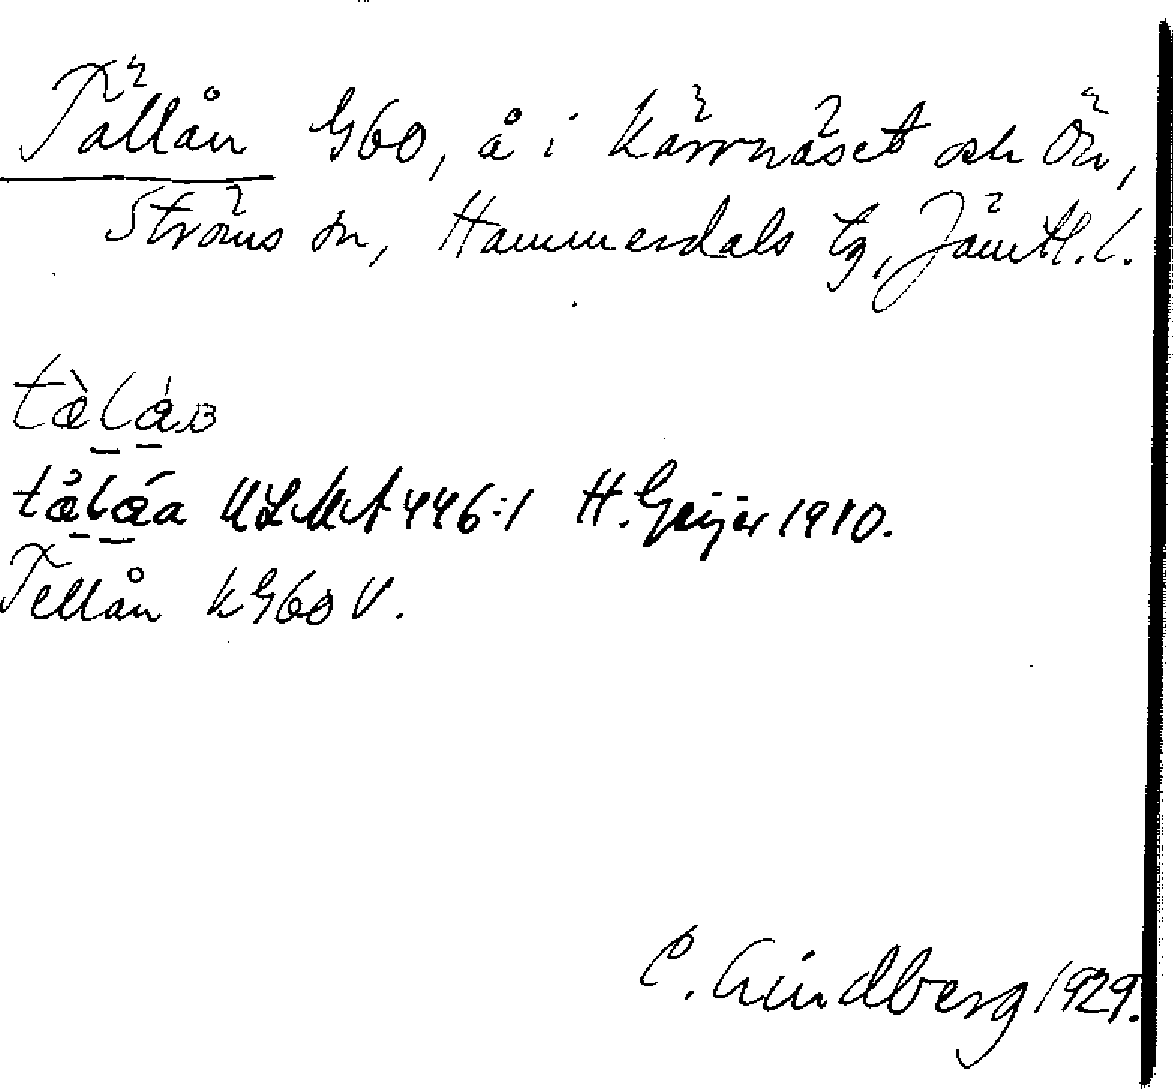 Tällån G60, å i Kärrnäset och Ön,
Ströms sn, Hammerdals tg, Jämtl. l.
tæ̀lá̱ɴ
tå̀láa ULMA 446:1 H. Geijer 1910.
Tellån kG60 V.
C. Lindberg 1929.